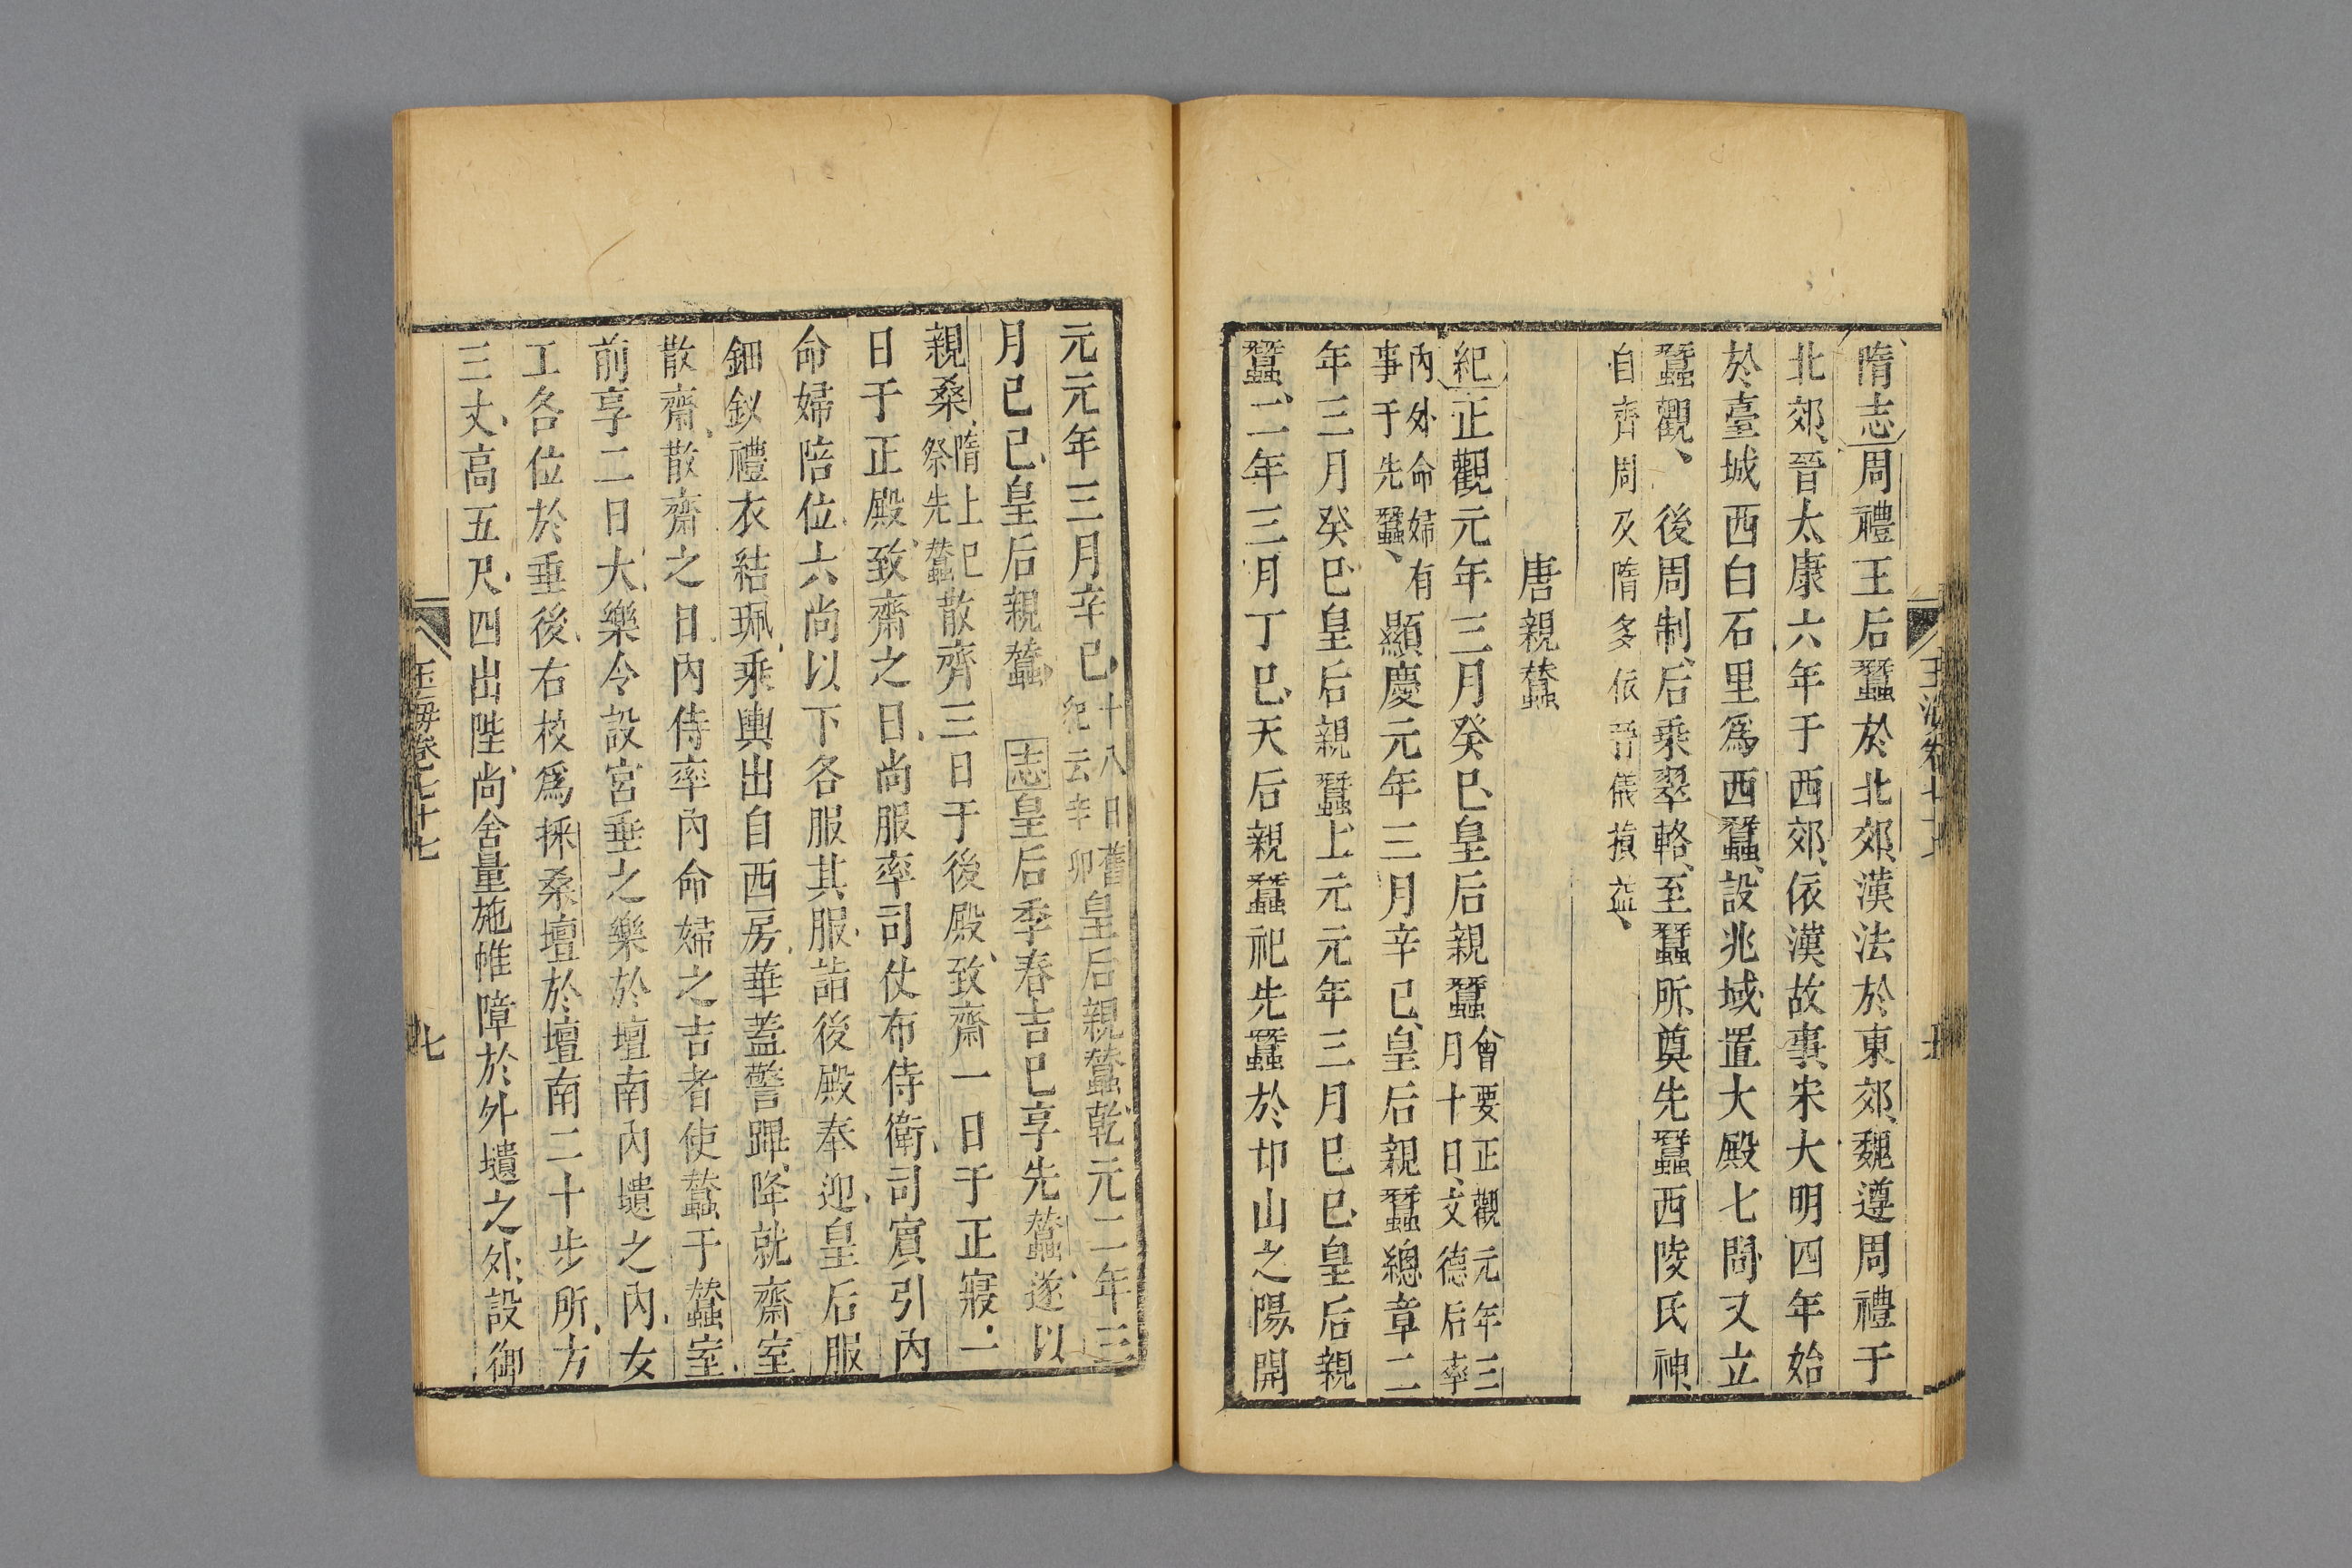 隋志周禮王后蠶於北郊漢法於東郊魏遵周禮于
北郊晉太康六年于西郊依漢故事宋大明四年始
於臺城西白石里爲西蠶設兆域置大殿七間又立
蠶觀後周制后乘翠輅至蠶所奠先蠶西陵氏神
自齊周及隋多依晉儀損益
唐親蠶
紀正觀元年三月癸巳皇后親蠶會要正觀元年三
月十日文德后率
內外命婦有
事于先蠶顯慶元年三月辛巳皇后親蠶總章二
年三月癸巳皇后親蠶上元元年三月巳巳皇后親
蠶二年三月丁巳天后親蠶祀先蠶於卭山之陽開
元元年三月辛巳十八日舊
紀云辛卯皇后親蠶乾元二年三
月巳巳皇后親蠶志皇后季春吉巳享先蠶遂以
親桑隋上巳
祭先蠶散齊三日于後殿致齋一日于正寢一
日于正殿致齋之日尚服率司仗布侍衛司賓引內
命婦陪位六尚以下各服其服詣後殿奉迎皇后服
鈿釵禮衣結珮乘輿出自西房華蓋警蹕降就齋室
散齋散齋之日內侍率內命婦之吉者使蠶于蠶室
前享二日大樂令設宮垂之樂於壇南內壝之內女
工各位於垂後右校爲採桑壇於壇南二十步所方
三丈高五尺四出陛尚舍量施帷障於外壝之外設御
玉海卷七十七
七